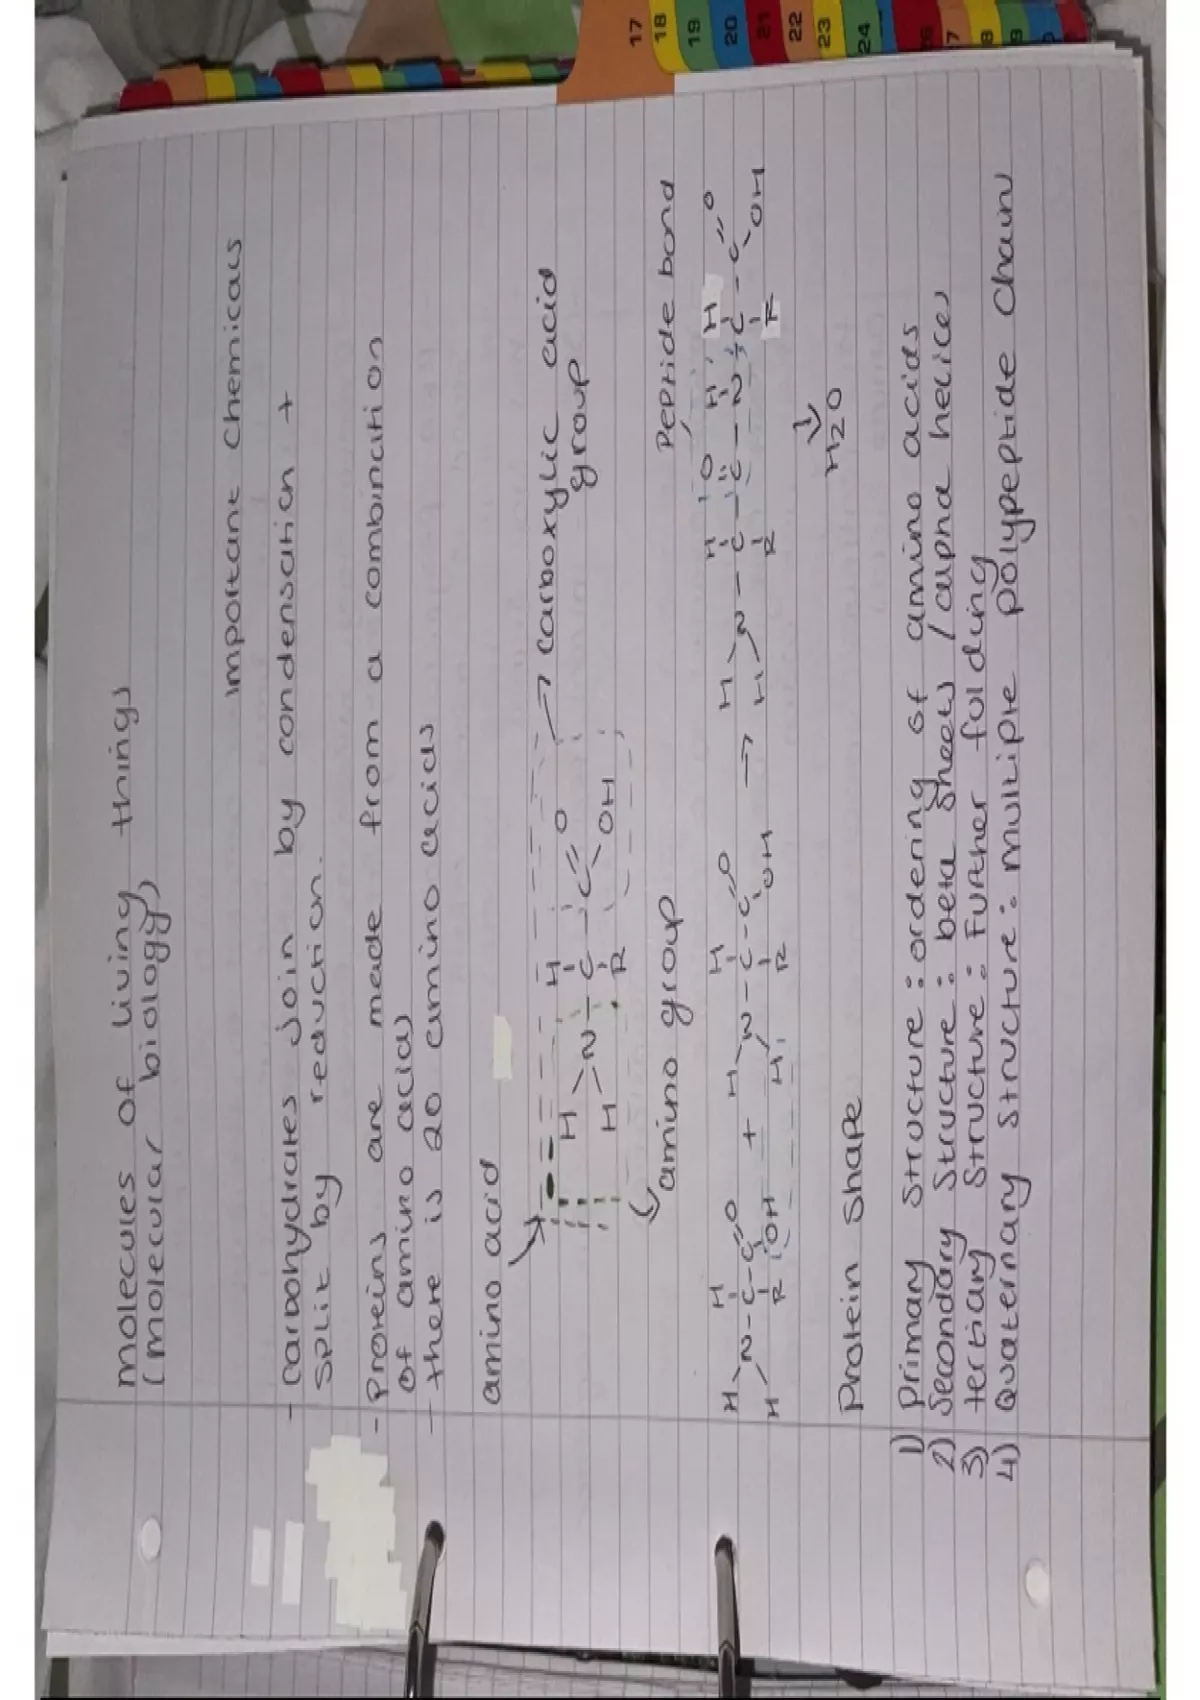 molecules of living things
(molecular biology)
important chemicals
- carbohydrates join by condensation +
split by reduction.
- Proteins are made from a combination
of amino acids
- there is 20 amino acids
amino acid
H H
N - C - C = O
H R OH
→ carboxylic acid
group
amino group
Peptide bond
H H H H H H O H H
N - C - C = O + N - C - C = O → N - C - C - N - C - C = O
H R OH H R OH H R R OH
H2O
Protein shape
1) primary structure: ordering of amino acids
2) Secondary structure: beta sheets / alpha helices
3) tertiary structure: Further folding
4) Quaternary structure: multiple polypeptide chain
17
18
19
20
21
22
23
24